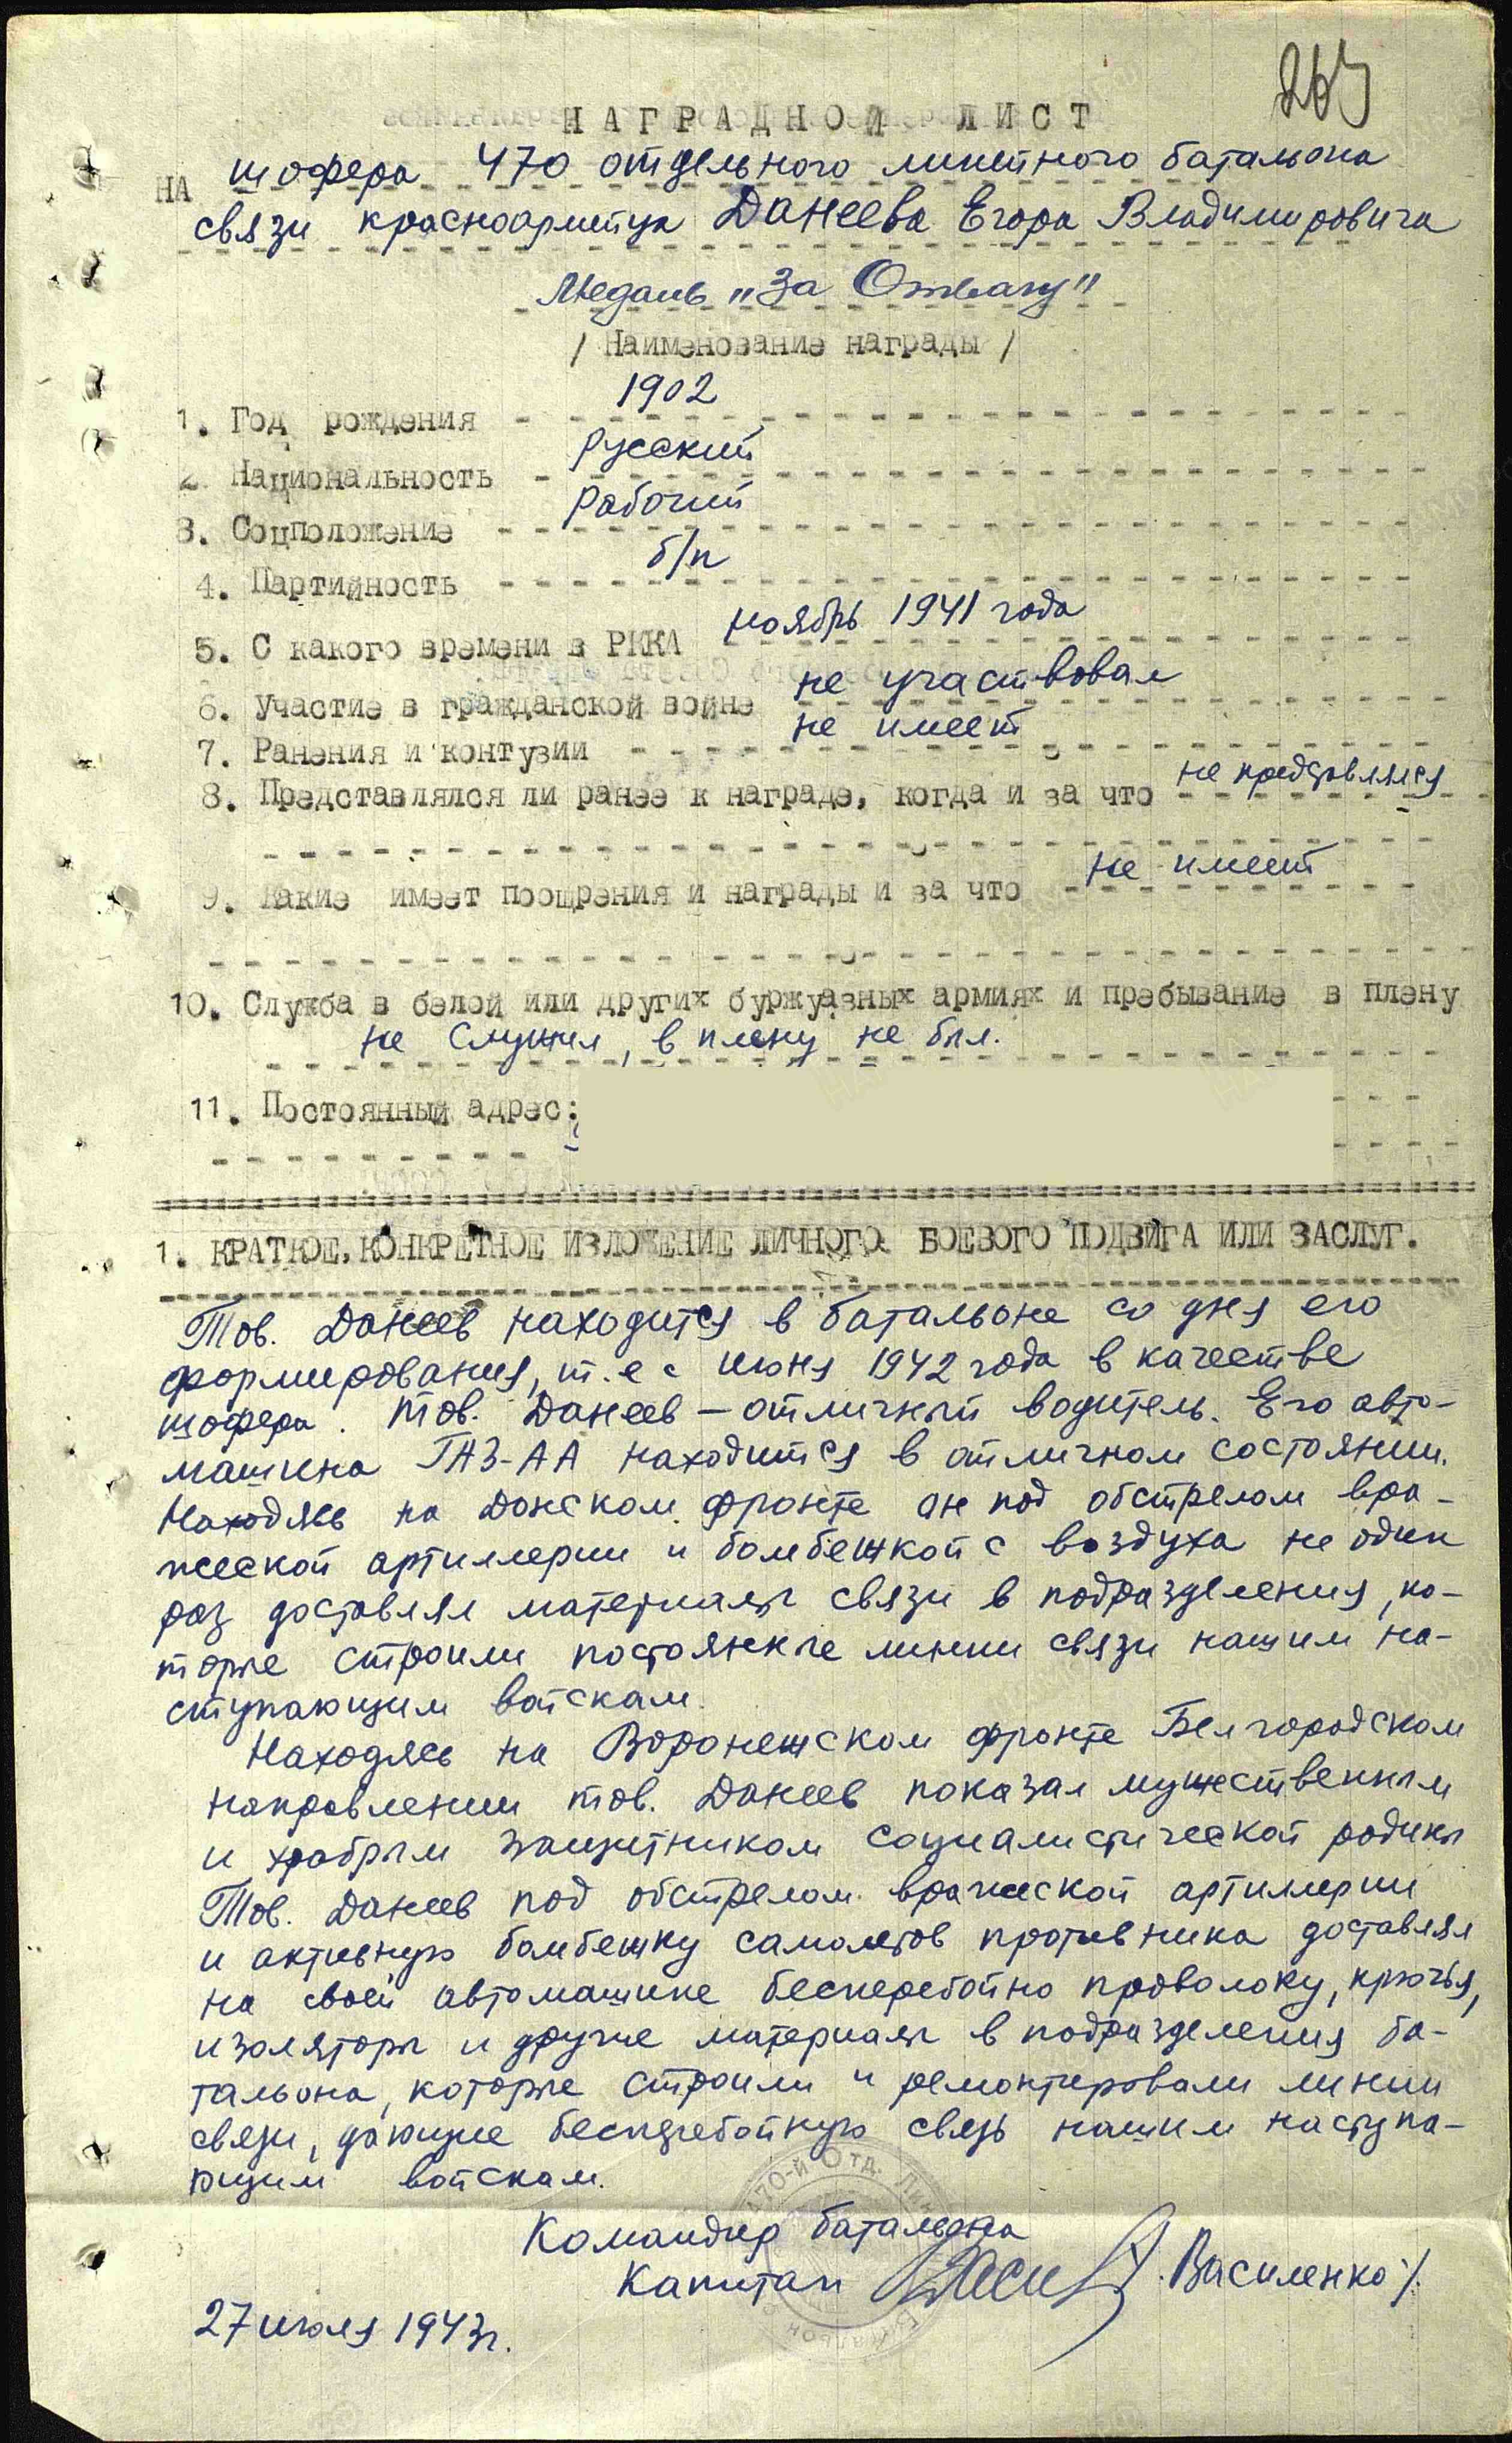 263
НАГРАДНОЙ ЛИСТ
НА шофера 470 отдельного линейного батальона
связи красноармейца Данеева Егора Владимировича
Медаль „За Отвагу"
/ Наименование награды /
1. Год рождения 1902
2. Национальность Русский
3. Соцположение Рабочий
4. Партийность б/п
5. С какого времени в РККА ноябрь 1941 года
6. Участие в гражданской войне не участвовал
7. Ранения и контузии не имеет
8. Представлялся ли ранее к награде, когда и за что не представлялся
9. Какие имеет поощрения и награды и за что не имеет
10. Служба в белой или других буржуазных армиях и пребывание в плену
не служил, в плену не был.
11. Постоянный адрес:
1. КРАТКОЕ, КОНКРЕТНОЕ ИЗЛОЖЕНИЕ ЛИЧНОГО БОЕВОГО ПОДВИГА ИЛИ ЗАСЛУГ.
Тов. Данеев находится в батальоне со дня его
формирования, т.е с июня 1942 года в качестве
шофера. Тов. Данеев – отличный водитель. Его авто-
машина ГАЗ-АА находится в отличном состоянии.
Находясь на Донском фронте он под обстрелом вра-
жеской артиллерии и бомбежкой с воздуха не один
раз доставлял материалы связи в подразделения, ко-
торые строили постоянные линии связи нашим на-
ступающим войскам.
Находясь на Воронежском фронте Белгородском
направлении тов. Данеев показал мужественным
и храбрым защитником социалистической родины
Тов. Данеев под обстрелом вражеской артиллерии
и активную бомбежку самолетов противника доставлял
на своей автомашине бесперебойно проволоку, крючья,
изоляторы и другие материалы в подразделения ба-
тальона, которые строили и ремонтировали линии
связи, дающие бесперебойную связь нашим наступа-
ющим войскам.
Командир батальона
Капитан /Василенко/.
27 июля 1943г.
470-й Отд. Лин